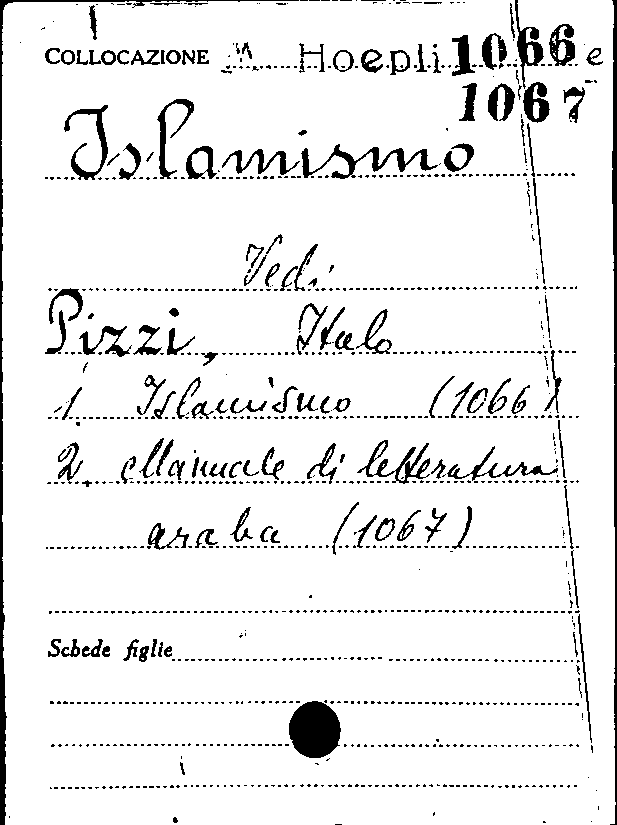 COLLOCAZIONE M. Hoepli 1066 e
1067
Islamismo
Vedi
Pizzi, Italo
1. Islamismo (1066)
2. Manuale di letteratura
araba (1067)
Schede figlie